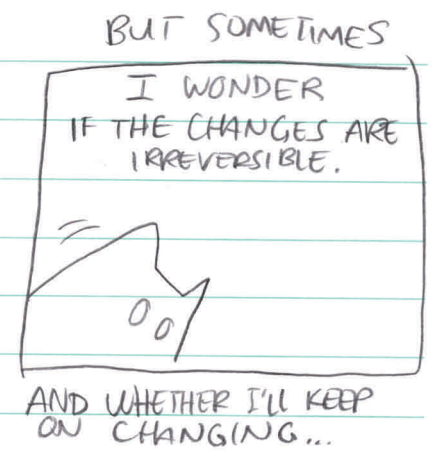 BUT SOMETIMES
I WONDER
IF THE CHANGES ARE
IRREVERSIBLE.
AND WHETHER I'LL KEEP
ON CHANGING...